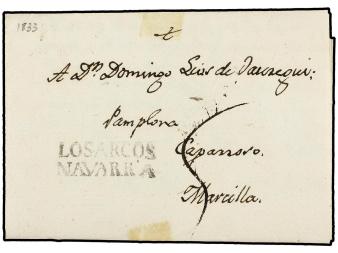 1833
A Dn Domingo Luis de Jauregui:
Pamplona
LOS ARCOS
NAVARRA
Caparroso.
Marcilla.
5